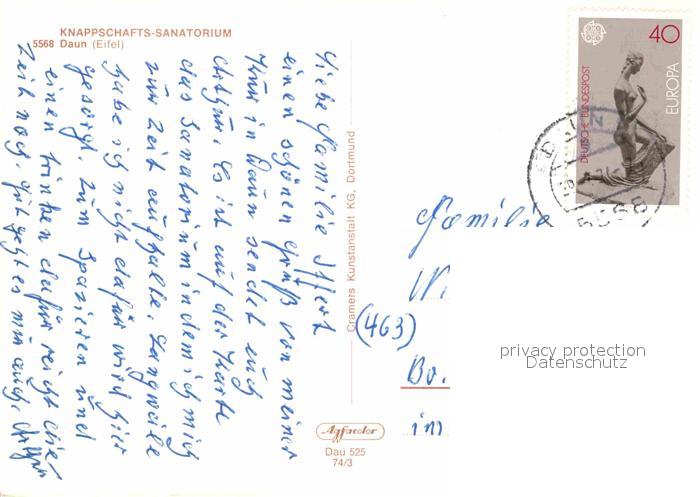 KNAPPSCHAFTS-SANATORIUM
5568 Daun (Eifel)
Liebe Familie
einen schönen Gruß von meiner
Kur in Daun sendet euch
Arthur. Es ist auf der Karte
das Sanatorium in dem ich mich
zur Zeit aufhalte. Langweile
habe ich nicht dafür wird hier
gesorgt. Zum Spazieren und
einen trinken dafür reicht die
Zeit noch. geht es mir auch.
Cramers Kunstanstalt KG, Dortmund
Agfacolor
Dau 525
74/3
40
DEUTSCHE BUNDESPOST
EUROPA
CEPT
5568
Familie
W
(463)
Bo.
im
privacy protection
Datenschutz